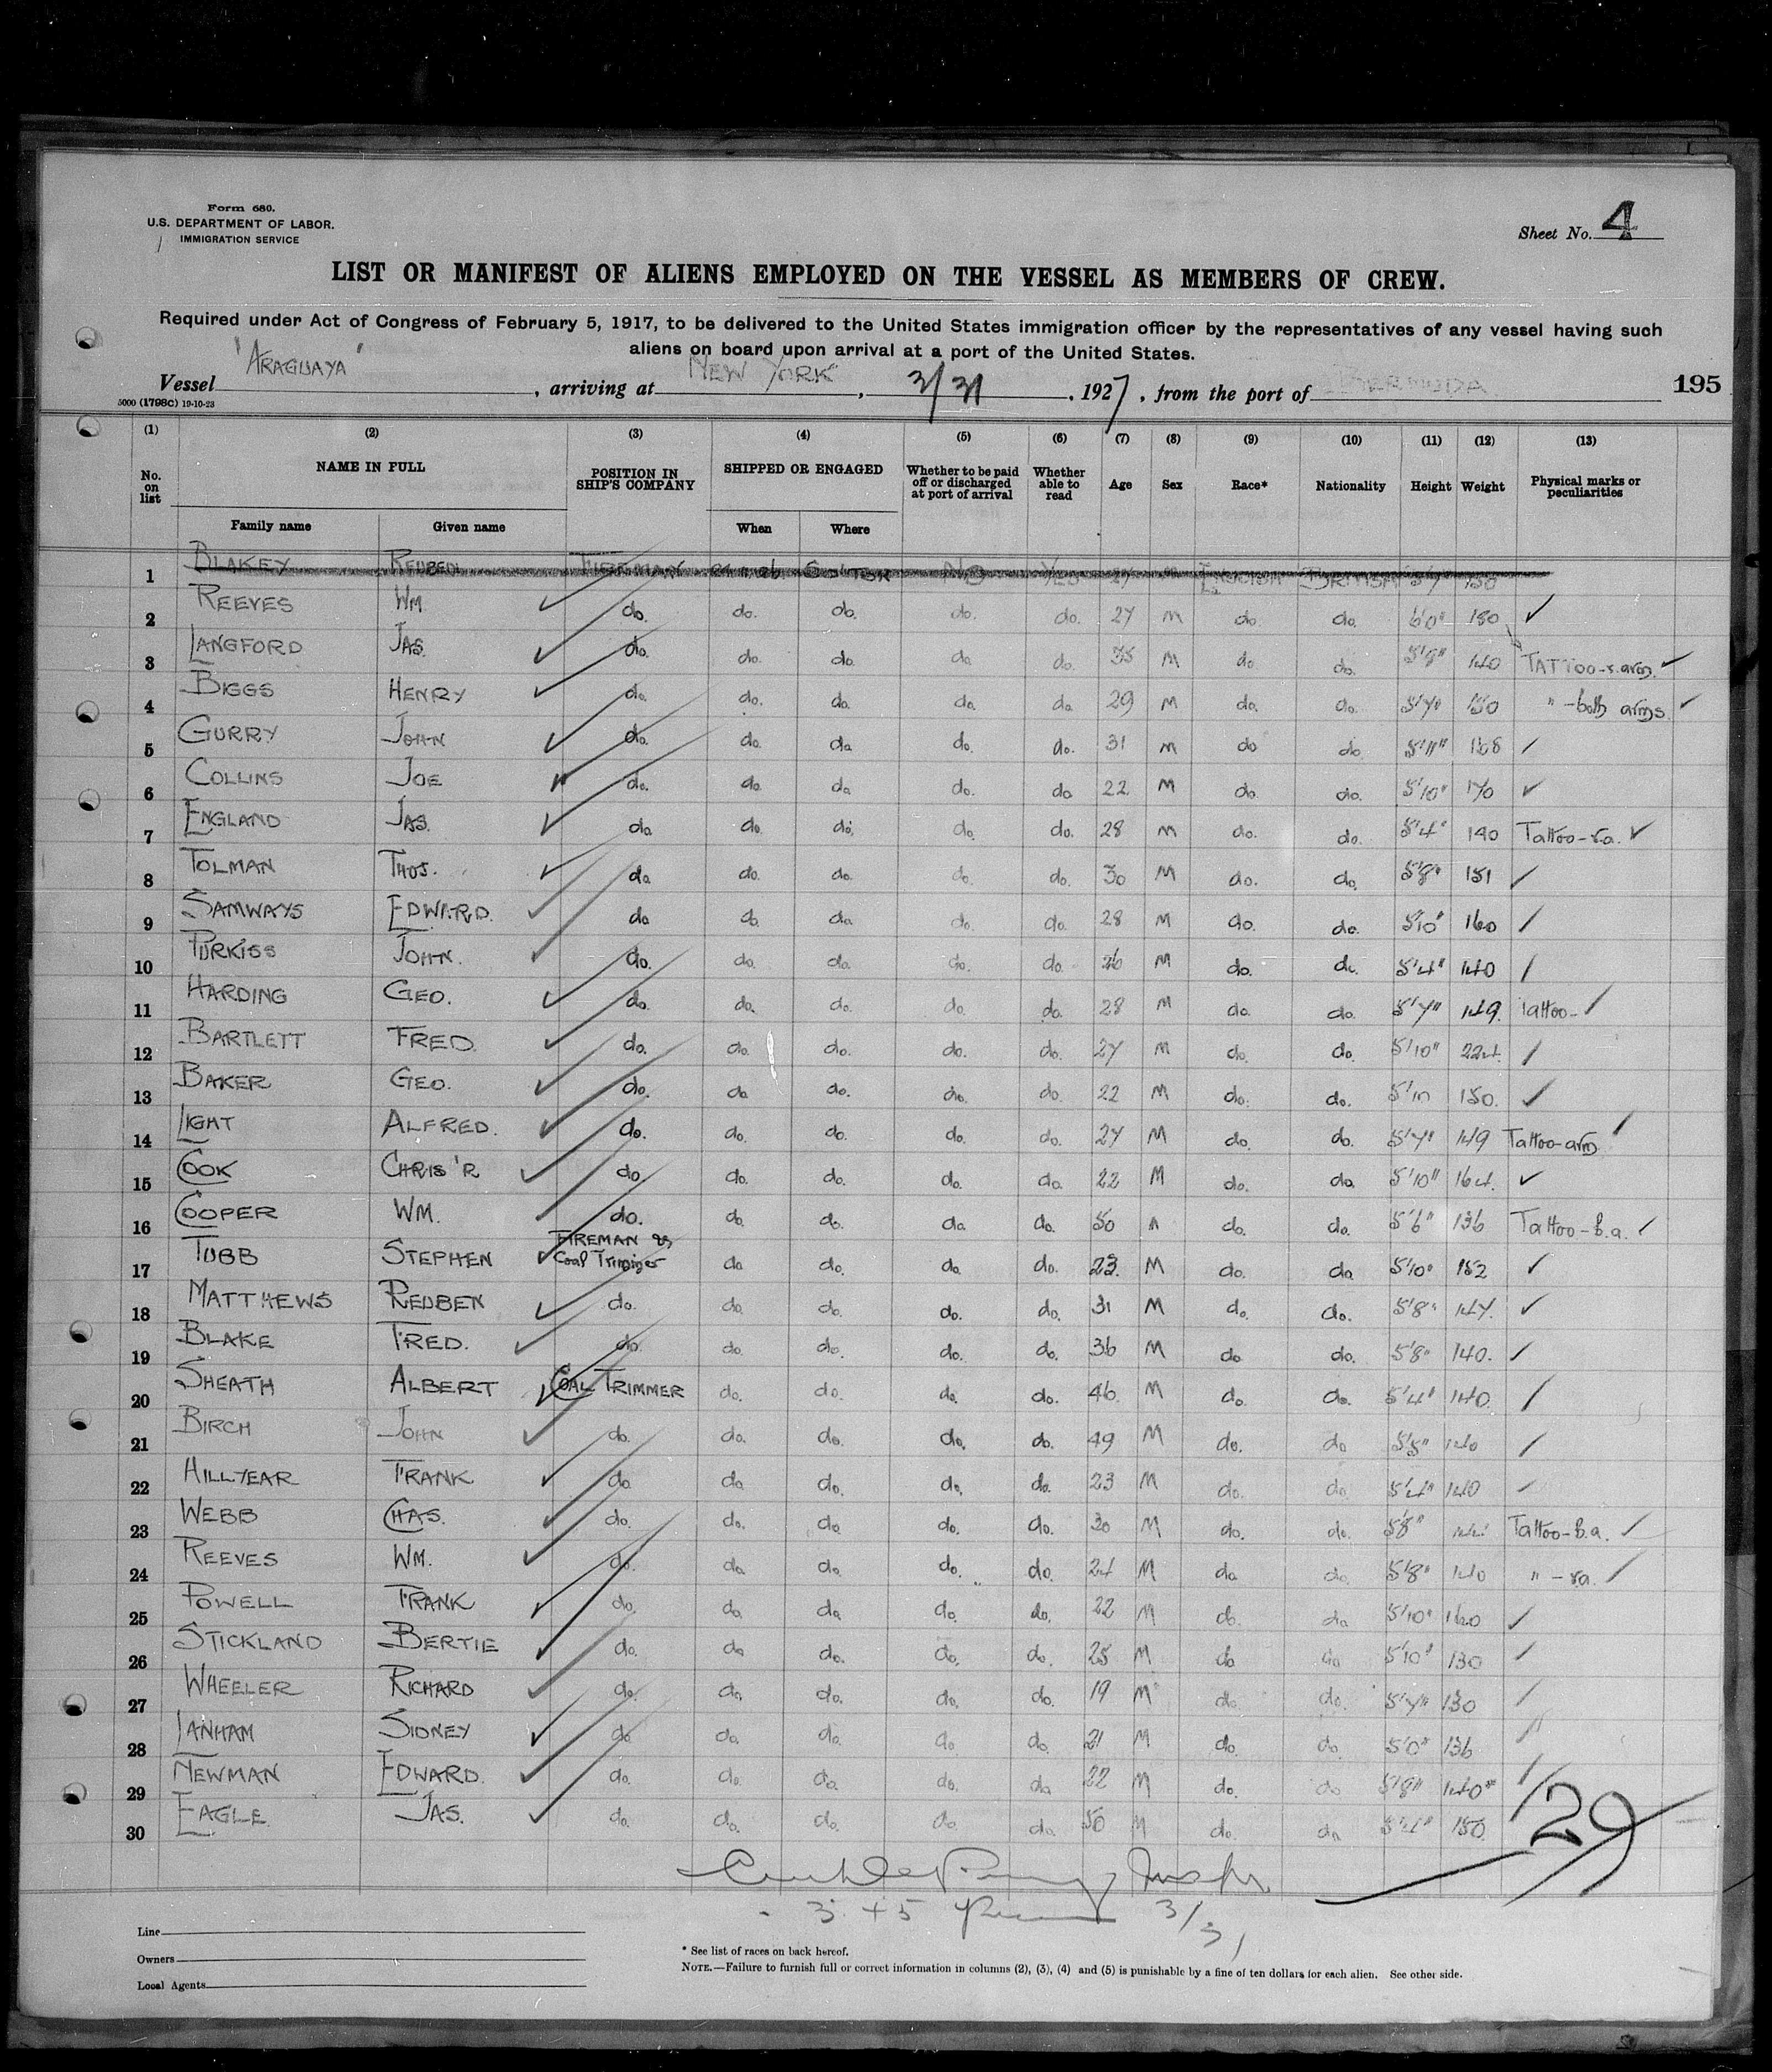 Form 680.
U.S. DEPARTMENT OF LABOR.
IMMIGRATION SERVICE
Sheet No. 4
LIST OR MANIFEST OF ALIENS EMPLOYED ON THE VESSEL AS MEMBERS OF CREW.
Required under Act of Congress of February 5, 1917, to be delivered to the United States immigration officer by the representatives of any vessel having such
aliens on board upon arrival at a port of the United States.
Vessel "ARAGUAYA", arriving at NEW YORK, 3/31, 1927, from the port of BERMUDA 195
5000 (1798C) 19-10-23
(1) (2) (3) (4) (5) (6) (7) (8) (9) (10) (11) (12) (13)
No. on list NAME IN FULL POSITION IN SHIP'S COMPANY SHIPPED OR ENGAGED Whether to be paid off or discharged at port of arrival Whether able to read Age Sex Race* Nationality Height Weight Physical marks or peculiarities
Family name Given name When Where
1 BLAKEY REUBEN FIREMAN NO YES 27 M ENGLISH BRITISH 5'7" 150
2 REEVES WM. do. do. do. do. do. 27 M do. do. 6'0" 180 ✓
3 LANGFORD JAS. do. do. do. do. do. 35 M do. do. 5'9" 140 TATTOO-r.arm. ✓
4 BIGGS HENRY do. do. do. do. do 29 M do. do. 5'7" 150 " -both arms. ✓
5 GURRY JOHN do. do. do do. do. 31 M do do 5'11" 158 ✓
6 COLLINS JOE do. do. do do. do 22 M do. do. 5'10" 170 ✓
7 ENGLAND JAS. do do. do. do. do. 28 M do. do. 5'4" 140 Tattoo-r.a. ✓
8 TOLMAN THOS. do do. do. do. do. 30 M do. do. 5'8" 151 ✓
9 SAMWAYS EDWARD. do do. do do. do. 28 M do. do. 5'10" 160 ✓
10 PURKISS JOHN. do. do. do. do. do. 26 M do. do. 5'4" 140 ✓
11 HARDING GEO. do. do. do. do. do. 28 M do. do. 5'7" 149 Tattoo- ✓
12 BARTLETT FRED. do. do. do. do. do. 27 M do. do. 5'10" 224 ✓
13 BAKER GEO. do. do do. do. do. 22 M do. do. 5'10 150. ✓
14 LIGHT ALFRED. do. do. do. do. do. 27 M do. do. 5'7" 149 Tattoo-arm ✓
15 COOK CHRIS'R do. do. do. do. do. 22 M do. do. 5'10" 164. ✓
16 COOPER WM. do. do. do. do. do. 50 M do. do. 5'6" 136 Tattoo-b.a. ✓
17 TUBB STEPHEN FIREMAN & Coal Trimmer do do. do. do. 23. M do. do 5'10" 152 ✓
18 MATTHEWS REUBEN do. do. do. do. do. 31 M do. do. 5'8" 147. ✓
19 BLAKE FRED. do. do. do. do. do. 36 M do do. 5'8" 140. ✓
20 SHEATH ALBERT COAL TRIMMER do. do. do. do. 46 M do. do. 5'4" 140. ✓
21 BIRCH JOHN do. do. do. do. do. 49 M do. do 5'5" 140 ✓
22 HILLYEAR FRANK do do do. do. do. 23 M do. do. 5'4" 140 ✓
23 WEBB CHAS. do. do. do. do. do. 30 M do. do. 5'8" Tattoo-b.a. ✓
24 REEVES WM. do. do do. do. do. 24 M do do. 5'8" 140 " -ra. ✓
25 POWELL FRANK do. do. do do. do. 22 M do. do 5'10" 160 ✓
26 STICKLAND BERTIE do. do do. do. do. 25 M do do 5'10" 130 ✓
27 WHEELER RICHARD do. do. do. do. do. 19 M do. do. 5'7" 130 ✓
28 LANHAM SIDNEY do do. do. do do. 21 M do. do. 5'0" 136 ✓
29 NEWMAN EDWARD. do. do. do. do. do 22 M do. do 5'8" 140 ✓
30 EAGLE JAS. do. do. do. do do. 50 M do. do 5'4" 150.
29
3/31
Line
Owners
Local Agents
* See list of races on back hereof.
NOTE.—Failure to furnish full or correct information in columns (2), (3), (4) and (5) is punishable by a fine of ten dollars for each alien. See other side.